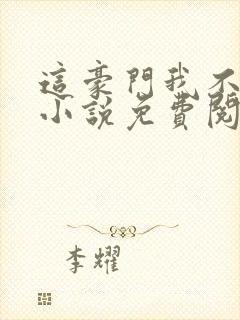 這豪門我不
小說免費閱
李耀